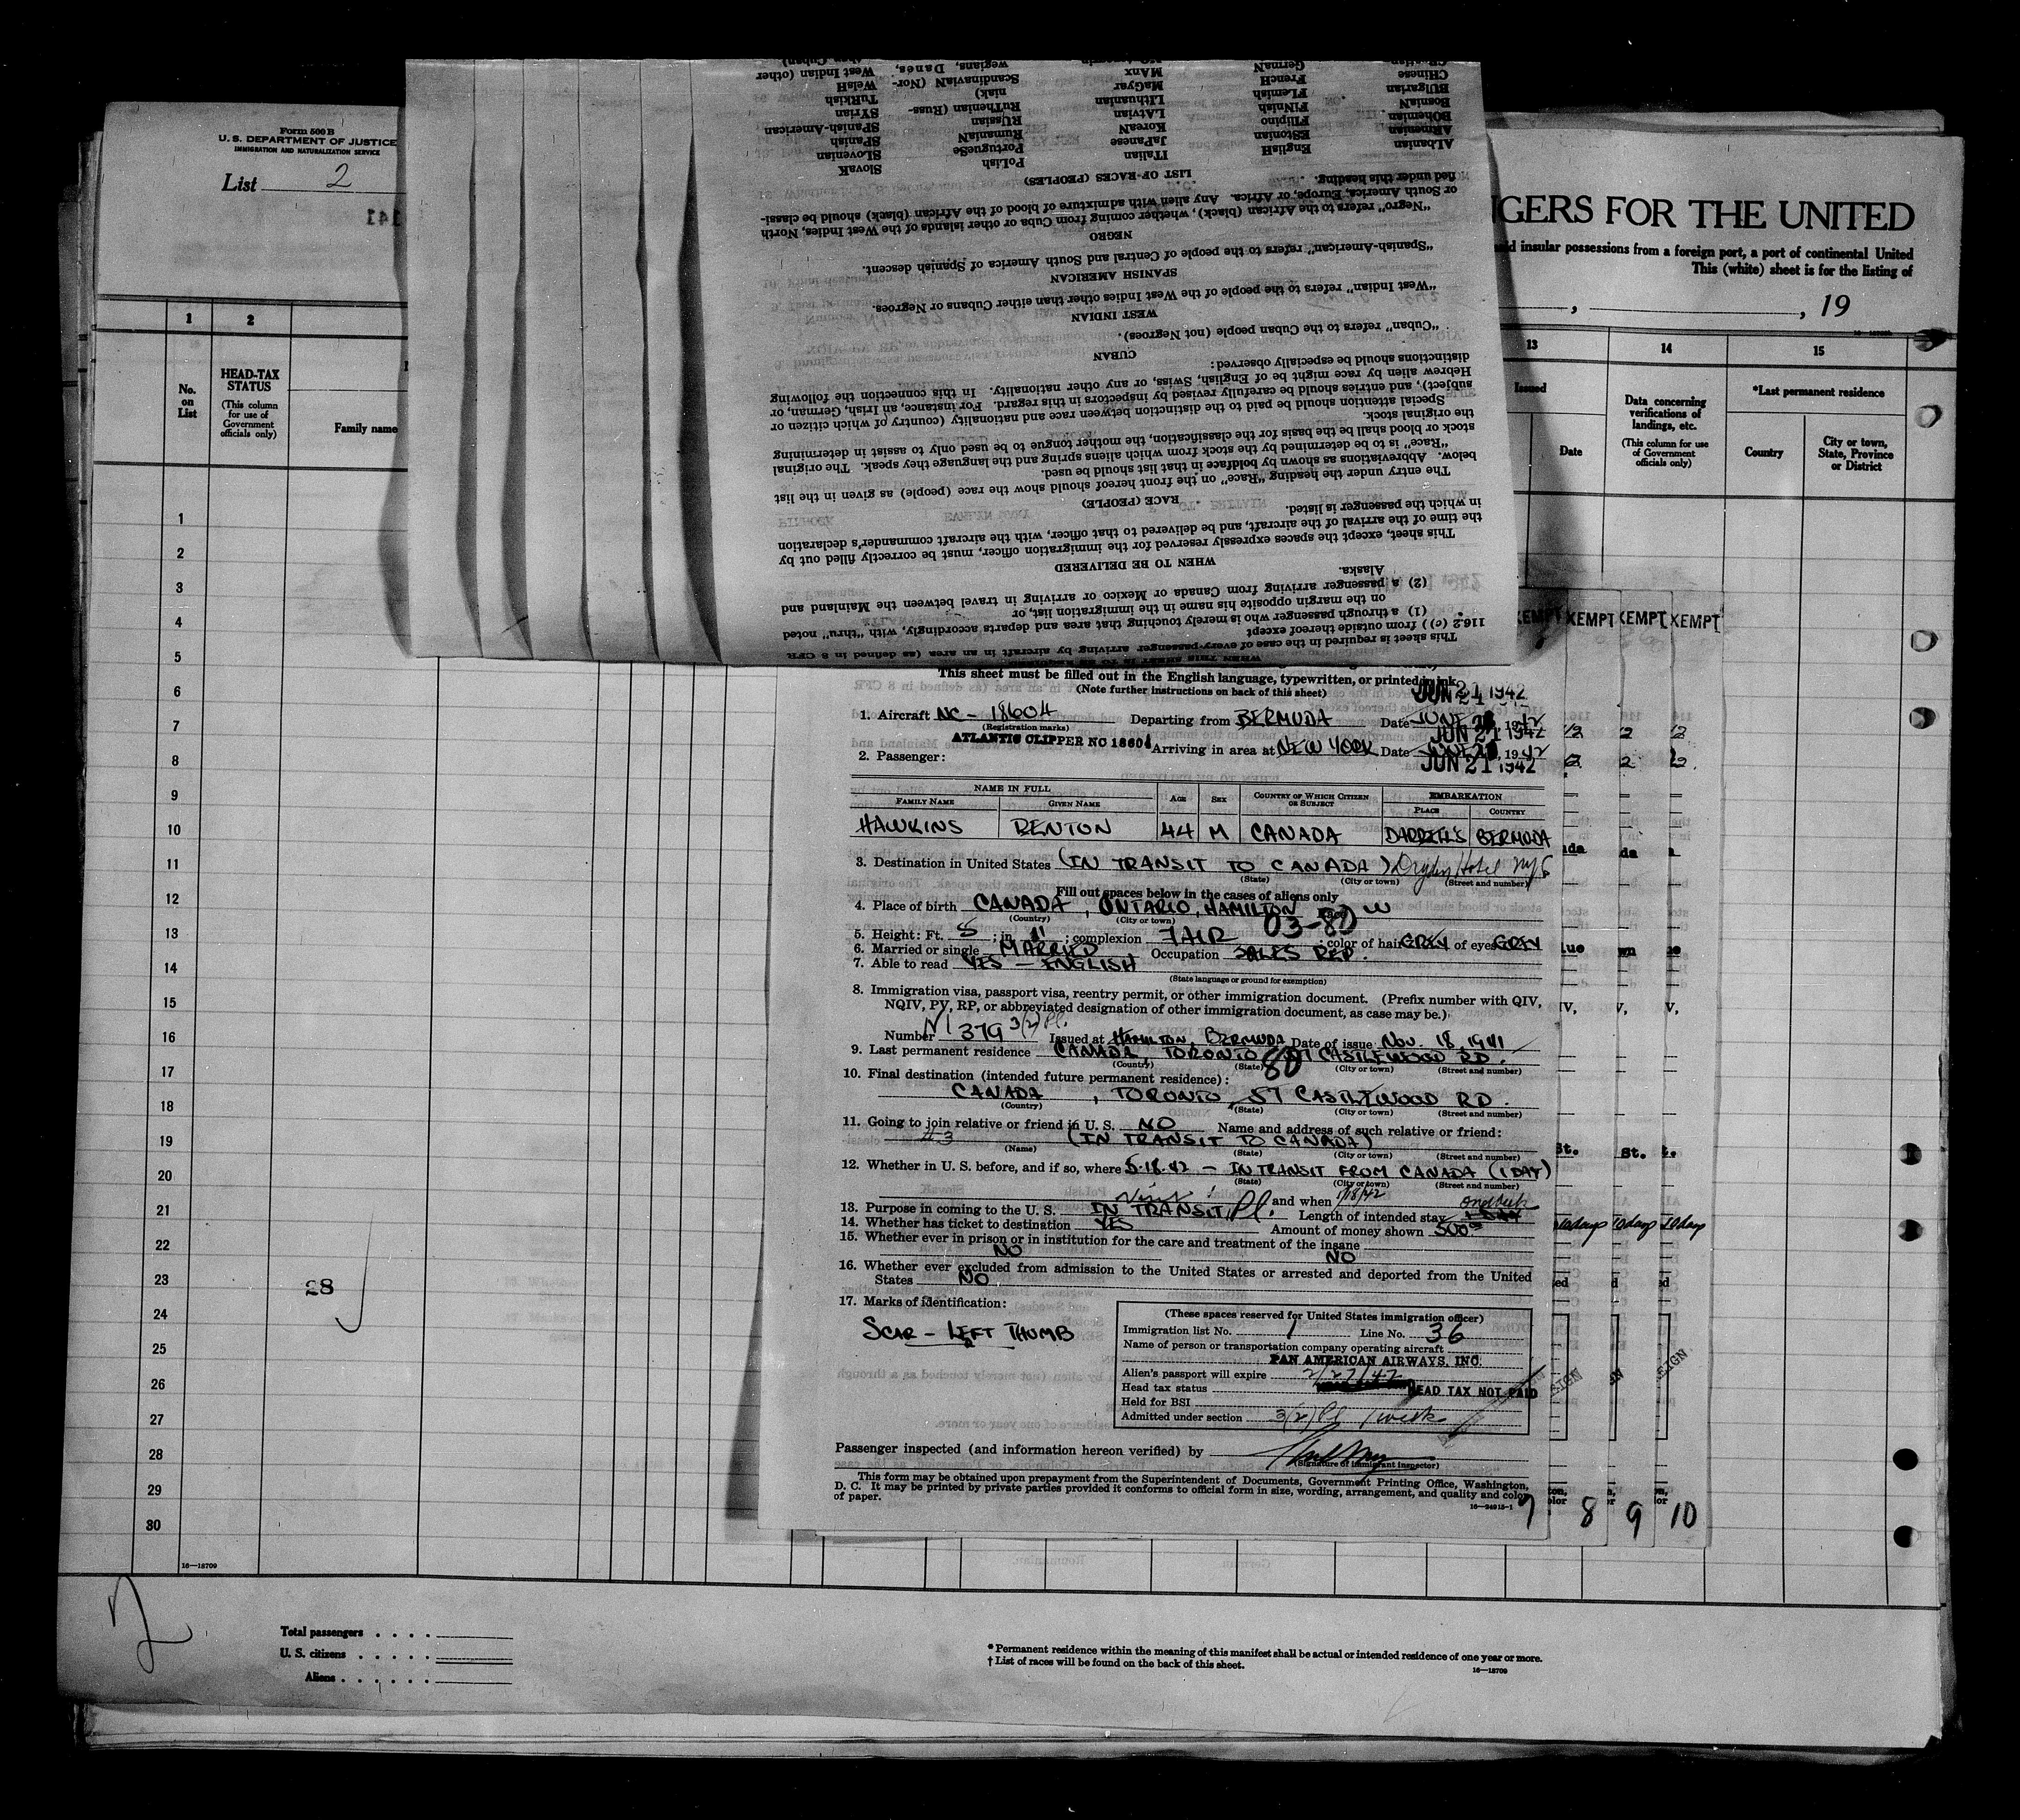 Form 500 B
U. S. DEPARTMENT OF JUSTICE
IMMIGRATION AND NATURALIZATION SERVICE
List 2
141
NGERS FOR THE UNITED
insular possessions from a foreign port, a port of continental United
This (white) sheet is for the listing of
, , 19
1 2
No. on List
HEAD-TAX STATUS
(This column for use of Government officials only)
Family name
13 14 15
Issued
Date
Data concerning verifications of landings, etc.
(This column for use of Government officials only)
*Last permanent residence
Country
City or town, State, Province or District
WHEN THIS SHEET IS TO BE REQUIRED
This sheet is required in the case of every passenger arriving by aircraft in an area (as defined in 8 CFR
116.2 (c) ) from outside thereof except
(1) a through passenger who is merely touching that area and departs accordingly, with "thru" noted
on the margin opposite his name in the immigration list, or
(2) a passenger arriving from Canada or Mexico or arriving in travel between the Mainland and
Alaska.
WHEN TO BE DELIVERED
This sheet, except the spaces expressly reserved for the immigration officer, must be correctly filled out by
the time of the arrival of the aircraft, and be delivered to that officer, with the aircraft commander's declaration
in which the passenger is listed.
RACE (PEOPLE)
The entry under the heading "Race" on the front hereof should show the race (people) as given in the list
below. Abbreviations as shown by boldface in that list should be used.
"Race" is to be determined by the stock from which aliens spring and the language they speak. The original
stock or blood shall be the basis for the classification, the mother tongue to be used only to assist in determining
the original stock.
Special attention should be paid to the distinction between race and nationality (country of which citizen or
subject), and entries should be carefully revised by inspectors in this regard. For instance, an Irish, German, or
Hebrew alien by race might be of English, Swiss, or any other nationality. In this connection the following
distinctions should be especially observed:
CUBAN
"Cuban" refers to the Cuban people (not Negroes).
WEST INDIAN
"West Indian" refers to the people of the West Indies other than either Cubans or Negroes.
SPANISH AMERICAN
"Spanish-American" refers to the people of Central and South America of Spanish descent.
NEGRO
"Negro" refers to the African (black), whether coming from Cuba or other islands of the West Indies, North
or South America, Europe, or Africa. Any alien with admixture of blood of the African (black) should be classi-
fied under this heading.
LIST OF RACES (PEOPLES)
ALbanian EnglisH ITalian PoLish SlovaK
ARmenian EStonian JaPanese PortugueSe SLovenian
BOhemian FIlipino KoreaN RumaniaN SPanish
BosniaN FINnish LAtvian RUssian SPanish-American
BUlgarian FLemish LIthuanian RuThenian (Russ- SYrian
CHinese FrencH MaGyar niak) TuRkish
German MAnx ScandinaviaN (Nor- WelsH
wegians, Danes, West Indian (other
This sheet must be filled out in the English language, typewritten, or printed in ink
(Note further instructions on back of this sheet)
JUN 21 1942
1. Aircraft NC - 18604 Departing from BERMUDA Date JUNE , 1942
(Registration marks)
JUN 21 1942
ATLANTIC CLIPPER NC 18604 Arriving in area at NEW YORK Date JUNE , 1942
2. Passenger:
JUN 21 1942
NAME IN FULL
FAMILY NAME GIVEN NAME AGE SEX COUNTRY OF WHICH CITIZEN OR SUBJECT EMBARKATION
PLACE COUNTRY
HAWKINS RENTON 44 M CANADA DARRELL'S BERMUDA
3. Destination in United States (IN TRANSIT TO CANADA) Dryden Hotel NYC
(State) (City or town) (Street and number)
Fill out spaces below in the cases of aliens only
4. Place of birth CANADA, ONTARIO, HAMILTON Race W
(Country) (City or town)
03-80
5. Height: Ft. 5 ; in. 11 ; complexion FAIR ; color of hair GREY of eyes GREY
6. Married or single MARRIED Occupation SALES REP.
7. Able to read YES - ENGLISH
(State language or ground for exemption)
8. Immigration visa, passport visa, reentry permit, or other immigration document. (Prefix number with QIV,
NQIV, PV, RP, or abbreviated designation of other immigration document, as case may be.)
Number 379 3(2) Pl. Issued at HAMILTON, BERMUDA Date of issue NOV. 18, 1941
9. Last permanent residence CANADA, TORONTO 57 CASTLEWOOD RD.
(Country) (State) (City or town) (Street and number)
80
10. Final destination (intended future permanent residence):
CANADA, TORONTO, 57 CASTLEWOOD RD.
(Country) (State) (City or town) (Street and number)
11. Going to join relative or friend in U. S. NO Name and address of such relative or friend:
#3 (IN TRANSIT TO CANADA)
(Name) (State) (City or town) (Street and number)
12. Whether in U. S. before, and if so, where 5.18.42 - IN TRANSIT FROM CANADA (1 DAY)
(State) (City or town) (Street and number)
and when 1/18/42
Visit
13. Purpose in coming to the U. S. IN TRANSIT, Pl. Length of intended stay one week
14. Whether has ticket to destination YES Amount of money shown 500
15. Whether ever in prison or in institution for the care and treatment of the insane
NO NO
16. Whether ever excluded from admission to the United States or arrested and deported from the United
States NO
17. Marks of identification:
SCAR - LEFT THUMB
(These spaces reserved for United States immigration officer)
Immigration list No. 1 Line No. 36
Name of person or transportation company operating aircraft
PAN AMERICAN AIRWAYS, INC.
Alien's passport will expire 2/27/47
Head tax status HEAD TAX NOT PAID
Held for BSI
Admitted under section 3(2) Pl 1 week
Passenger inspected (and information hereon verified) by
(Signature of immigrant inspector)
This form may be obtained upon prepayment from the Superintendent of Documents, Government Printing Office, Washington,
D. C. It may be printed by private parties provided it conforms to official form in size, wording, arrangement, and quality and color
of paper.
16—24915-1
7 8 9 10
XEMPT XEMPT XEMPT XEMPT
10 days 10 days 10 days
St. St.
1
2
3
4
5
6
7
8
9
10
11
12
13
14
15
16
17
18
19
20
21
22
23
24
25
26
27
28
29
30
28
16—18709
2
Total passengers
U. S. citizens
Aliens
* Permanent residence within the meaning of this manifest shall be actual or intended residence of one year or more.
† List of races will be found on the back of this sheet.
16—18709